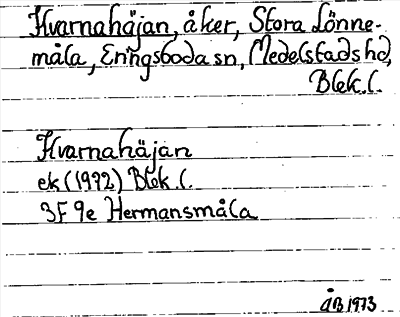 Hvarnahäjan, åker, Stora Lönne-
måla, Eringsboda sn, Medelstads hd,
Blek. l.
Hvarnahäjan
ek (1972) Blek. l.
3F 9e Hermansmåla
ÅB 1973